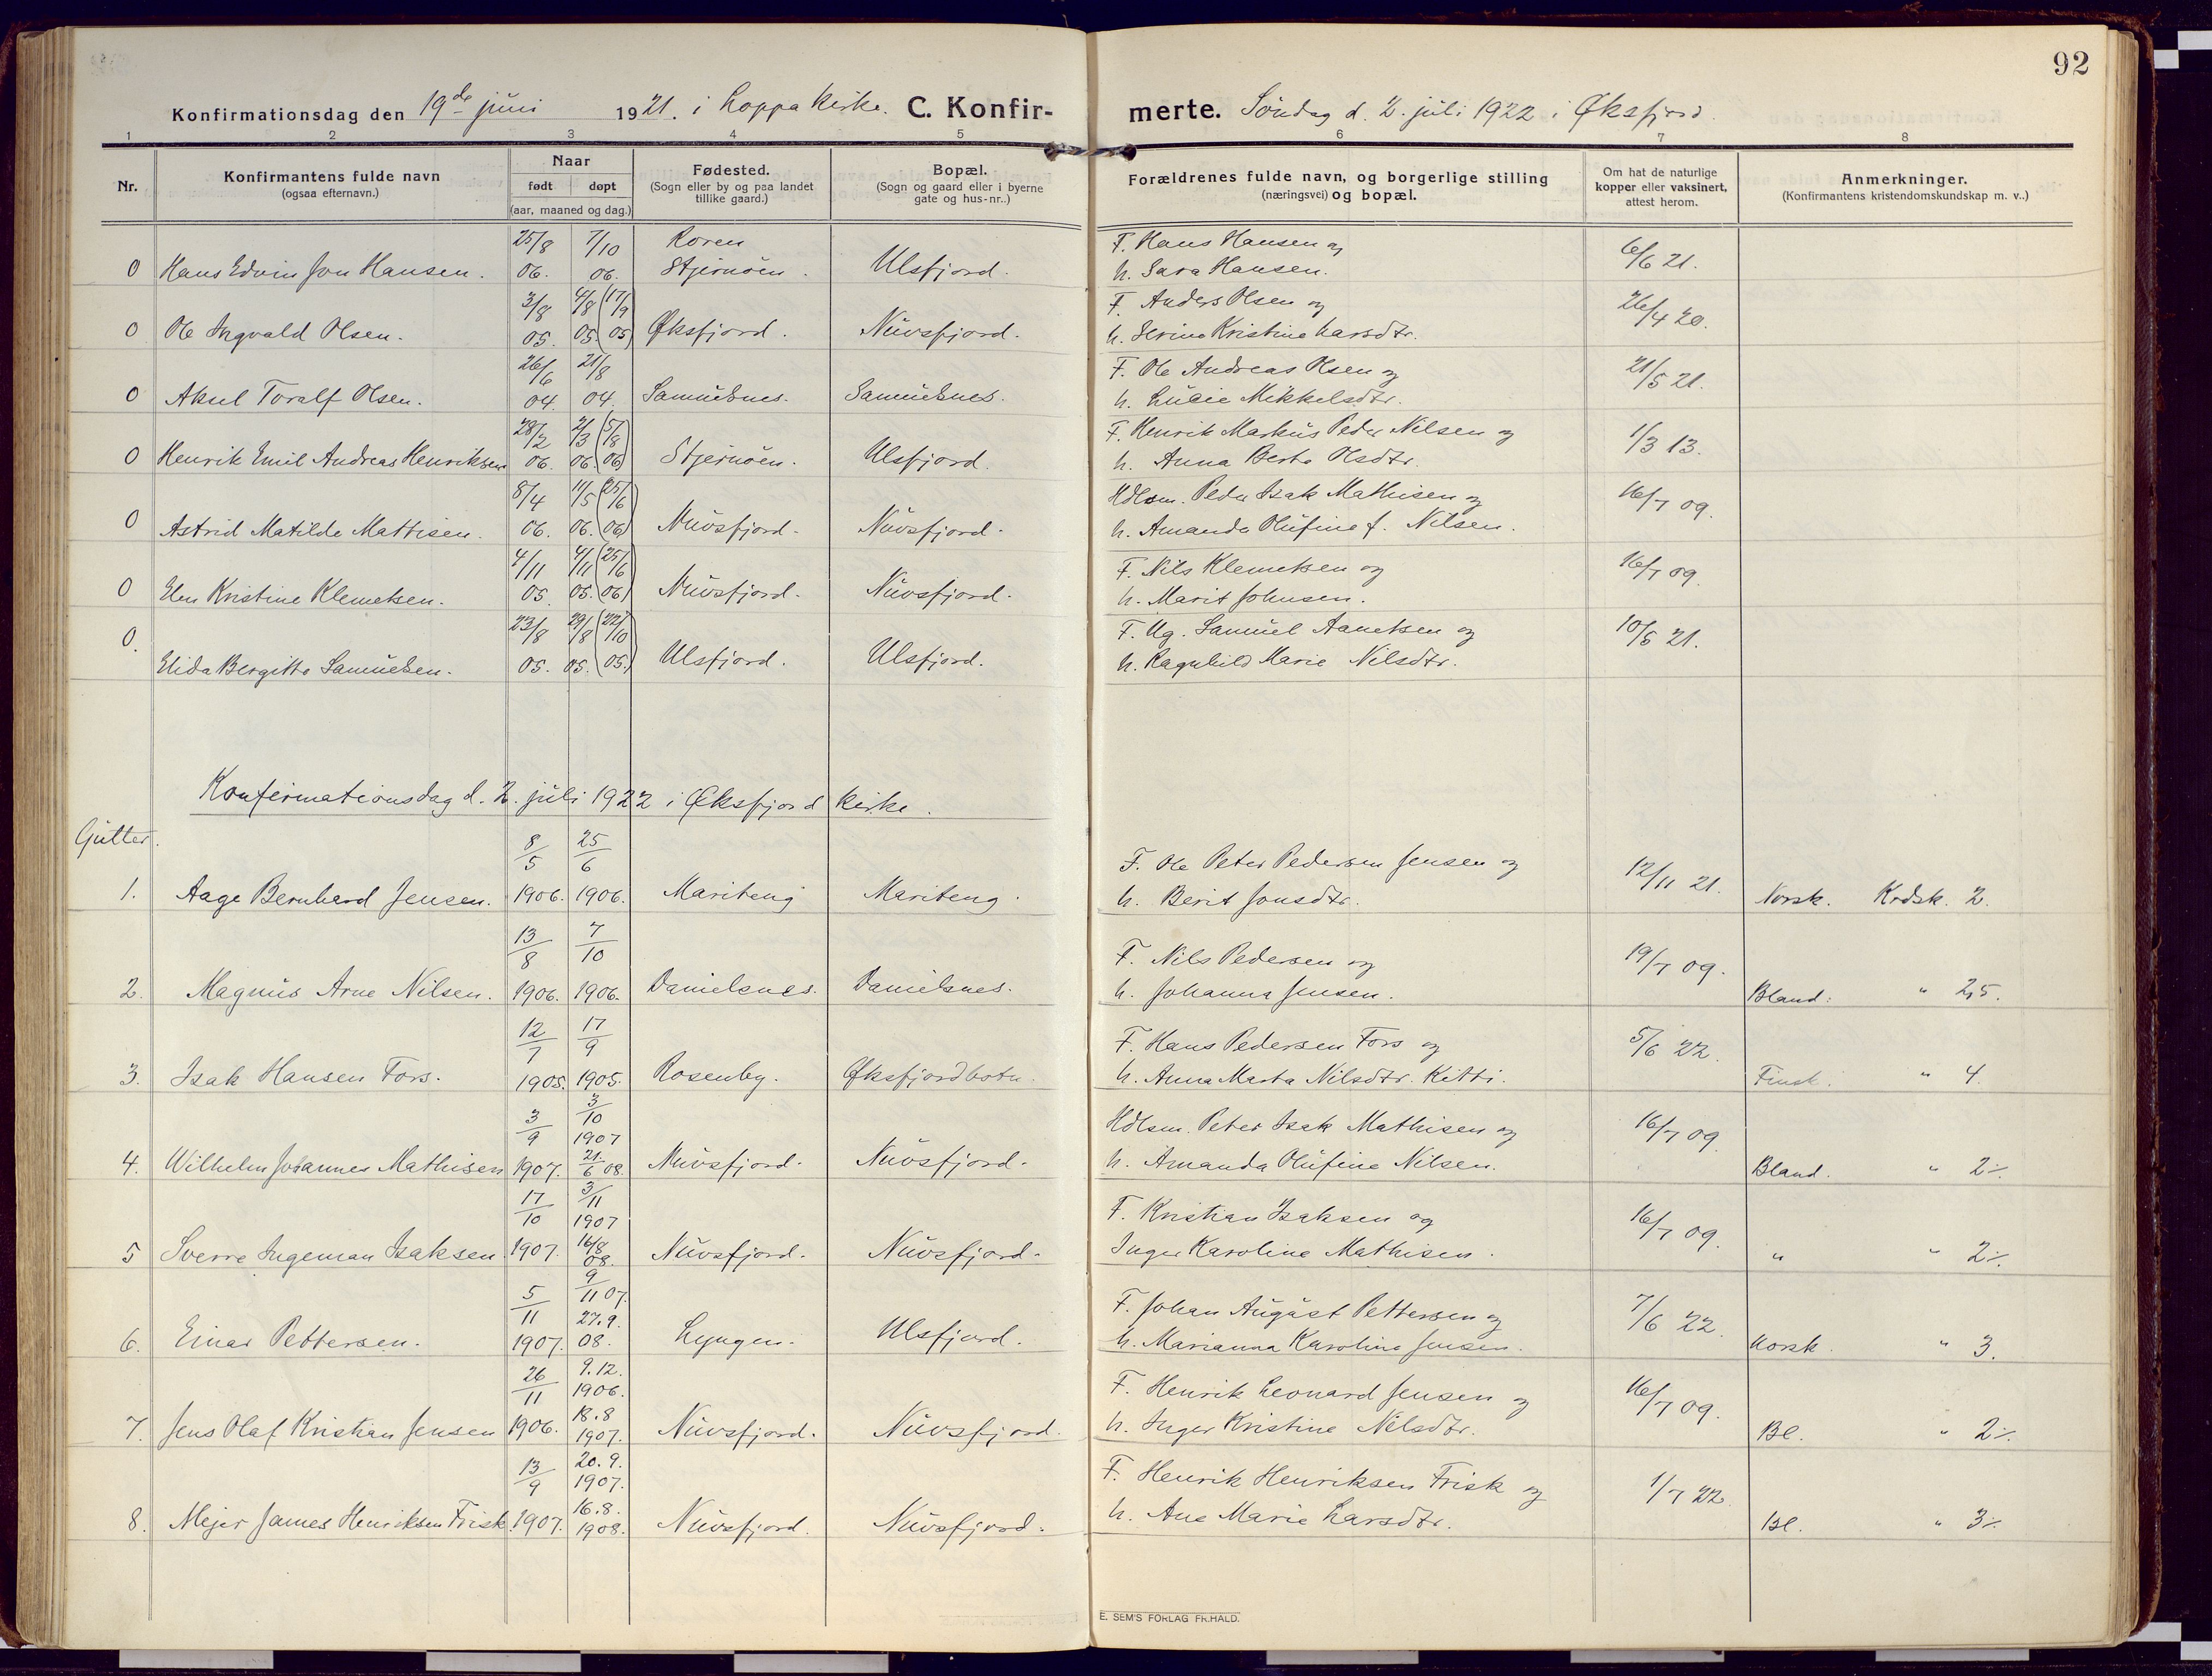 92
Konfirmationsdag den 19de juni 1921. i Loppa kirke. C. Konfir-
merte. Söndag d. 2. juli 1922 i Øksfjord.
1 2 3 4 5 6 7 8
Nr. Konfirmantens fulde navn (ogsaa efternavn.) Naar født døpt (aar, maaned og dag.) Fødested. (Sogn eller by og paa landet tillike gaard.) Bopæl. (Sogn og gaard eller i byerne gate og hus-nr..) Forældrenes fulde navn, og borgerlige stilling (næringsvei) og bopæl. Om hat de naturlige kopper eller vaksinert, attest herom. Anmerkninger. (Konfirmantens kristendomskundskap m. v..)
25/8 7/10 Roren F. Hans Hansen og
0 Hans Edvin Jon Hansen. 06. 06. Stjernöen. Ulsfjord. h. Sara Hansen. 6/6 21.
3/8 4/8 (17/9 F. Anders Olsen og
0 Ole Ingvald Olsen. 05. 05. 05) Øksfjord. Nuvsfjord. h. Serine Kristine Larsdtr. 26/4 20.
26/6 21/8 F. Ole Andreas Olsen og
0 Aksel Toralf Olsen. 04. 04. Samuelsnes. Samuelsnes. h. Lucie Mikkelsdtr. 21/5 21.
28/2 2/3 (5/8 F. Henrik Markus Peder Nilsen og
0 Henrik Emil Andreas Henriksen 06. 06. 06) Stjernöen. Ulsfjord. h. Anna Berto Olsdtr. 1/3 13.
8/4 11/5 (25/6 Hdlsm. Peder Isak Mathisen og
0 Astrid Matilde Mattisen. 06. 06. 06) Nuvsfjord. Nuvsfjord. h. Amanda Olufine f. Nilsen. 16/7 09.
4/11 4/11 (25/6 F. Nils Klemetsen og
0 Elen Kristine Klemetsen. 05. 05. 06) Nuvsfjord. Nuvsfjord. h. Marit Johnsen. 16/7 09.
23/8 29/8 (22/10 F. Ug. Samuel Aanetsen og
0. Elida Bergitte Samuelsen. 05. 05. 05.) Ulsfjord. Ulsfjord. h. Ragnhild Marie Nilsdtr. 10/5 21.
Konfirmationsdag d. 2. juli 1922 i Øksfjord kirke.
Gutter.
8/5 25/6 F. Ole Peter Pedersen Jensen og
1. Aage Bernhard Jensen. 1906. 1906. Mariteng Mariteng. h. Berit Jonsdtr. 12/11 21. Norsk. Krdsk. 2.
13/8 7/10 F. Nils Pedersen og
2. Magnus Arne Nilsen. 1906. 1906. Danielsnes. Danielsnes. h. Johanna Jensen. 19/7 09. Bland: " 2,5.
12/7 17/9 F. Hans Pedersen Fors og
3. Isak Hansen Fors. 1905. 1905. Rosenby. Øksfjordbotn. h. Anna Marta Nilsdtr. Kitti. 5/6 22. Finsk. " 4.
3/9 3/10 1907 Hdlsm. Peter Isak Mathisen og
4. Wilhelm Johannes Mathisen 1907. 21./6 08. Nuvsfjord. Nuvsfjord. h. Amanda Olufine Nilsen. 16/7 09. Bland. " 2÷
17/10 3/11 1907 F. Kristian Isaksen og
5 Sverre Ingeman Isaksen. 1907. 16/8 08. Nuvsfjord. Nuvsfjord. Inger Karoline Mathisen. 16/7 09. " " 2÷.
5/11 9/11 07. F. Johan August Pettersen og
6. Einar Pettersen. 1907. 27.9. 08. Lyngen. Ulsfjord. h. Marianna Karoline Jensen. 7/6 22. Norsk. " 3.
26/11 9.12. 1906. F. Henrik Leonard Jensen og
7. Jens Olaf Kristian Jensen 1906. 18.8 1907. Nuvsfjord. Nuvsfjord. h. Inger Kristine Nilsdtr. 16/7 09. Bl. " 2÷.
13/9 20.9. 1907. F. Henrik Henriksen Frisk og
8. Mejer James Henriksen Frisk. 1907. 16.8. 1908. Nuvsfjord. Nuvsfjord. h. Ane Marie Larsdtr. 1/7 22. Bl. " 3÷
E. SEM'S FORLAG FR.HALD.